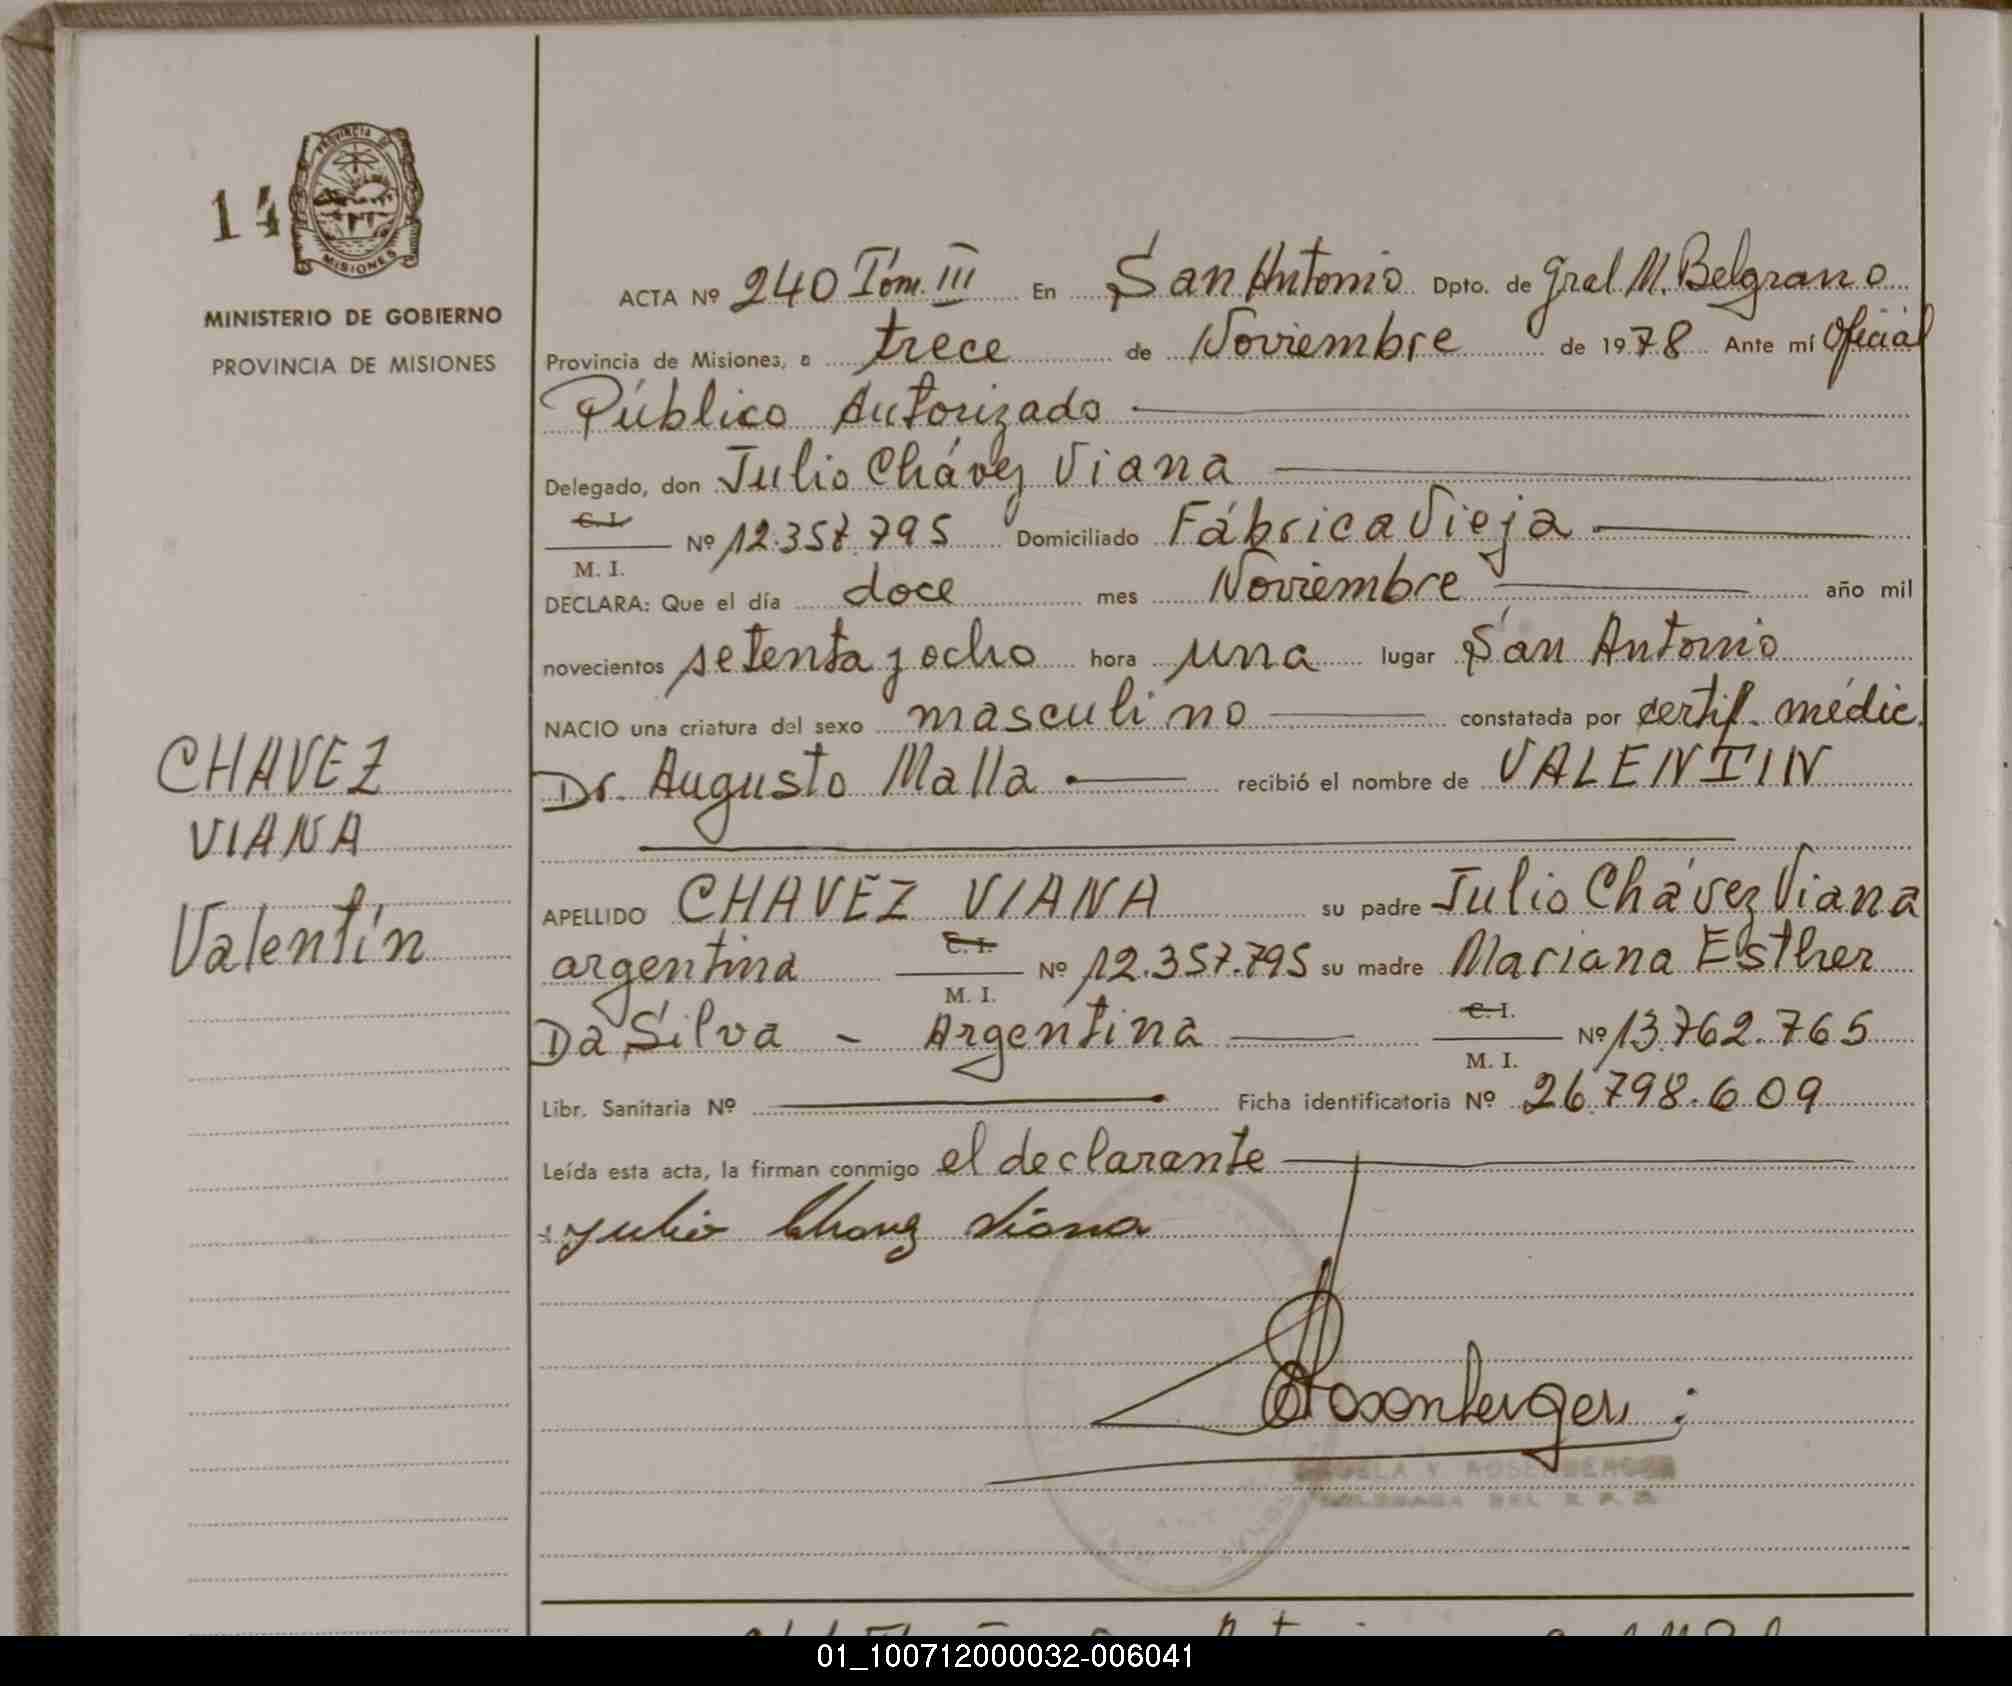 PROVINCIA DE
MISIONES
14
MINISTERIO DE GOBIERNO
PROVINCIA DE MISIONES
CHAVEZ
VIANA
Valentín
ACTA Nº 240 Tom. III En San Antonio Dpto. de Gral M. Belgrano
Provincia de Misiones, a trece de Noviembre de 1978 Ante mí Oficial
Público Autorizado
Delegado, don Julio Chávez Viana
C. I.
M. I. Nº 12.357.795 Domiciliado Fábrica Vieja
DECLARA: Que el día doce mes Noviembre año mil
novecientos setenta y ocho hora una lugar San Antonio
NACIO una criatura del sexo masculino constatada por certif. médic.
Dr. Augusto Malla recibió el nombre de VALENTIN
APELLIDO CHAVEZ VIANA su padre Julio Chávez Viana
argentina C. I. M. I. Nº 12.357.795 su madre Mariana Esther
Da Silva - Argentina C. I. M. I. Nº 13.762.765
Libr. Sanitaria Nº Ficha identificatoria Nº 26.798.609
Leída esta acta, la firman conmigo el declarante
Julio Chavez Viana
Rosenberger
ROSENBERGER
01_100712000032-006041